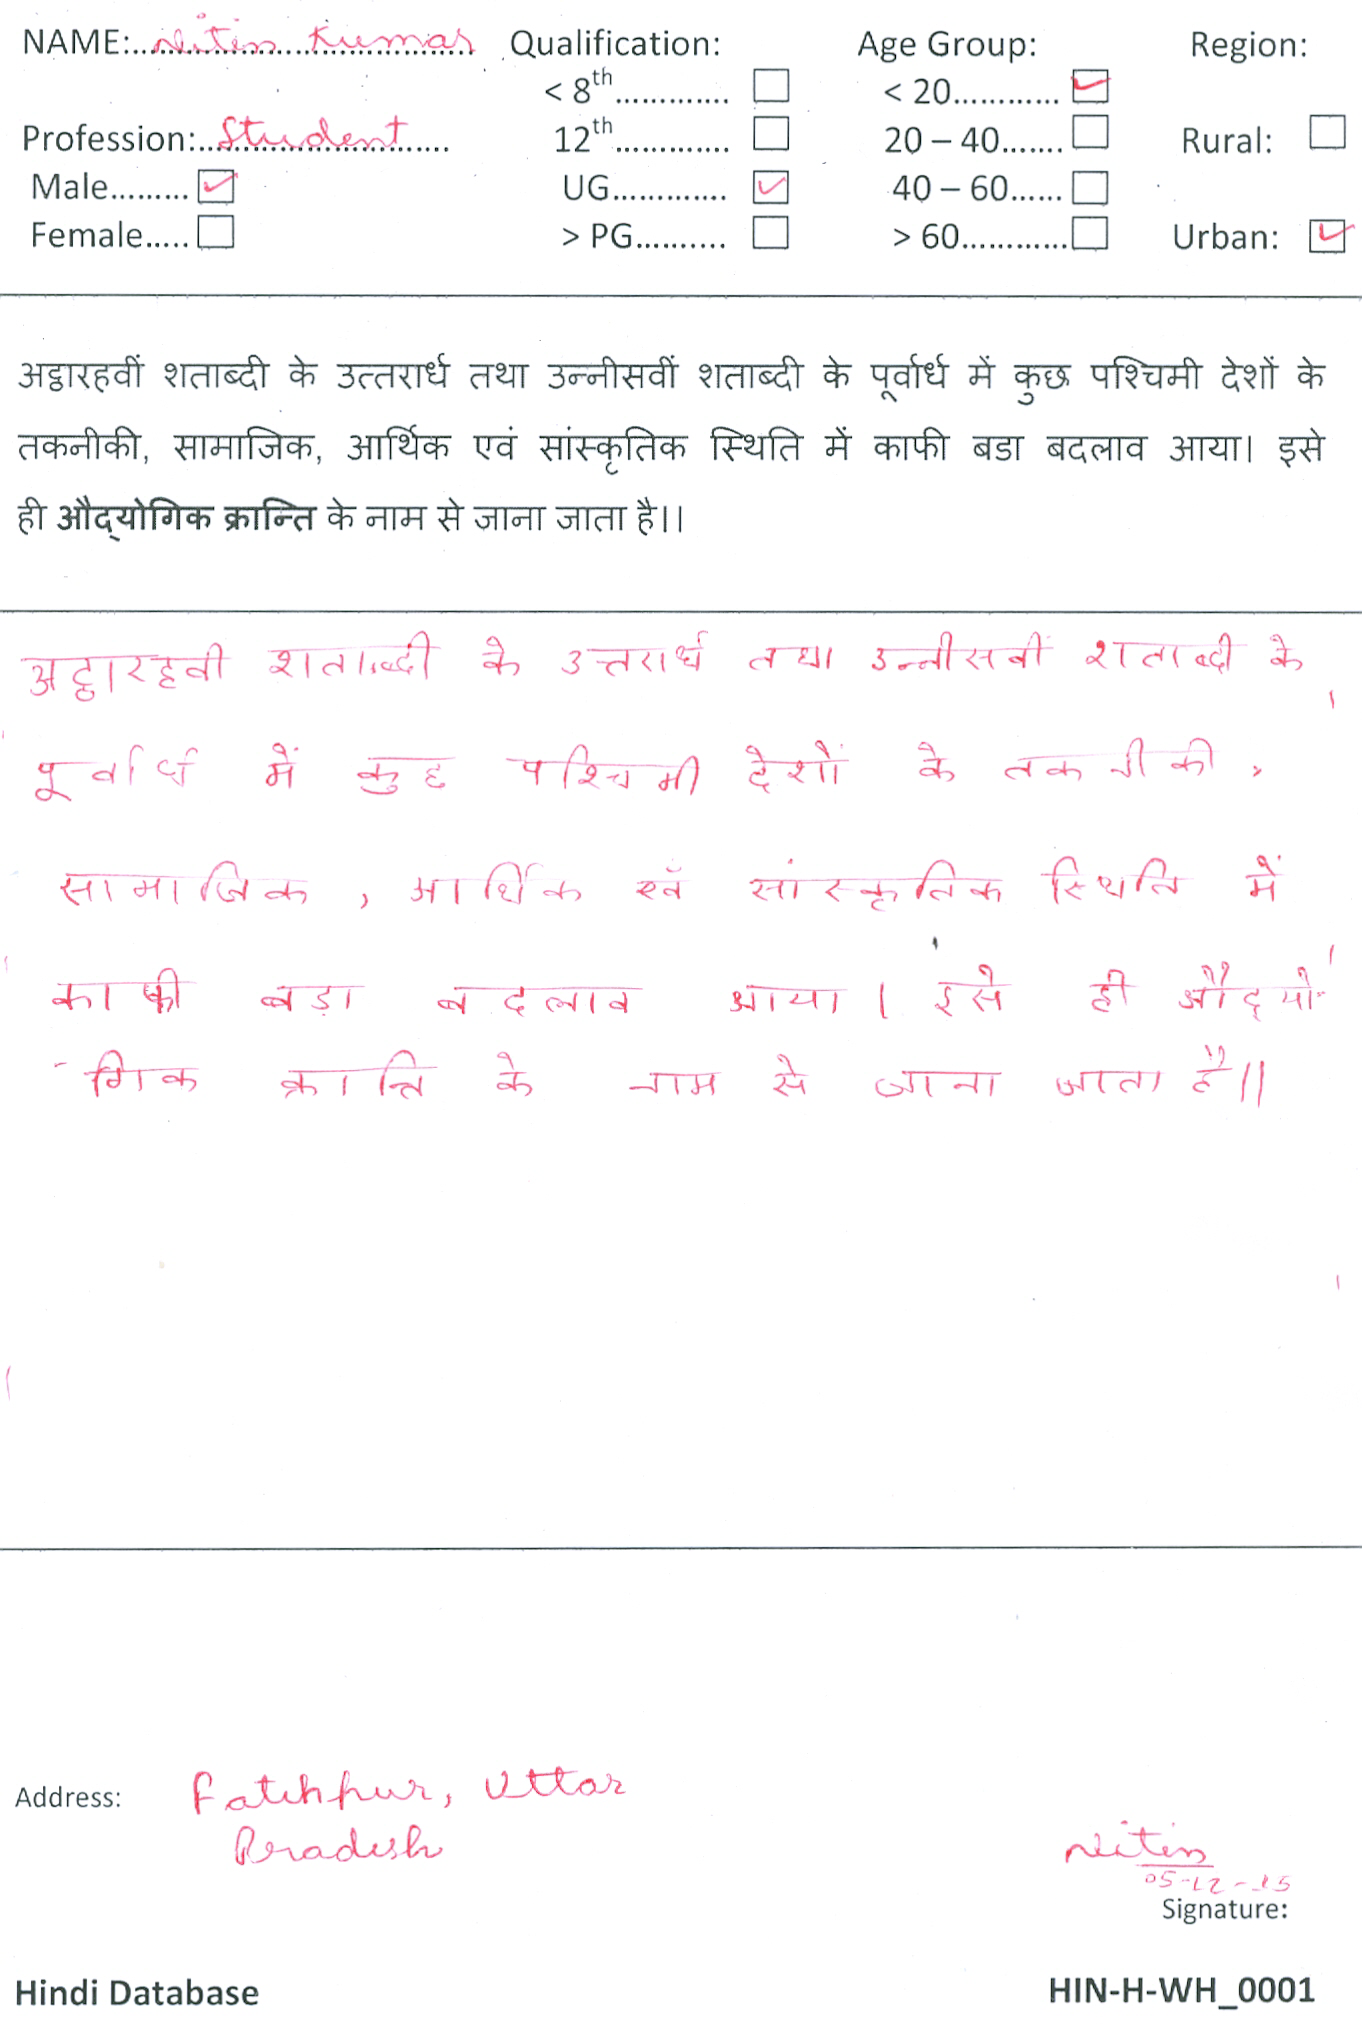 NAME:..Nitin Kumar Qualification: Age Group: Region:
< 8th............. < 20............
Profession:..Student 12th............. 20 – 40....... Rural:
Male......... UG............. 40 – 60......
Female..... > PG.......... > 60............ Urban:
अट्ठारहवीं शताब्दी के उत्तरार्ध तथा उन्नीसवीं शताब्दी के पूर्वार्ध में कुछ पश्चिमी देशों के
तकनीकी, सामाजिक, आर्थिक एवं सांस्कृतिक स्थिति में काफी बडा बदलाव आया। इसे
ही औद्योगिक क्रान्ति के नाम से जाना जाता है।।
अट्ठारहवी शताब्दी के उत्तरार्ध तथा उन्नीसवीं शताब्दी के
पूर्वार्ध में कुछ पश्चिमी देशों के तकनीकी,
सामाजिक, आर्थिक एवं सांस्कृतिक स्थिति में
काफी बड़ा बदलाव आया। इसे ही औद्यो-
-गिक क्रान्ति के नाम से जाना जाता है।।
Address: Fatehpur, Uttar
Pradesh
Nitin
05-12-15
Signature:
Hindi Database HIN-H-WH_0001